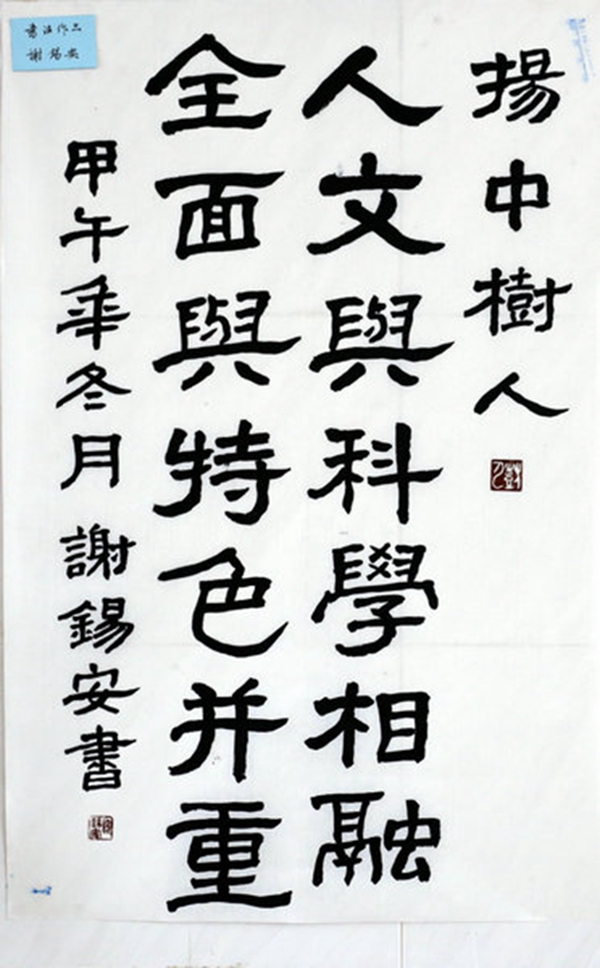 揚中樹人
人文與科學相融
全面與特色并重
甲午年冬月 謝錫安書
書法作品
謝錫安